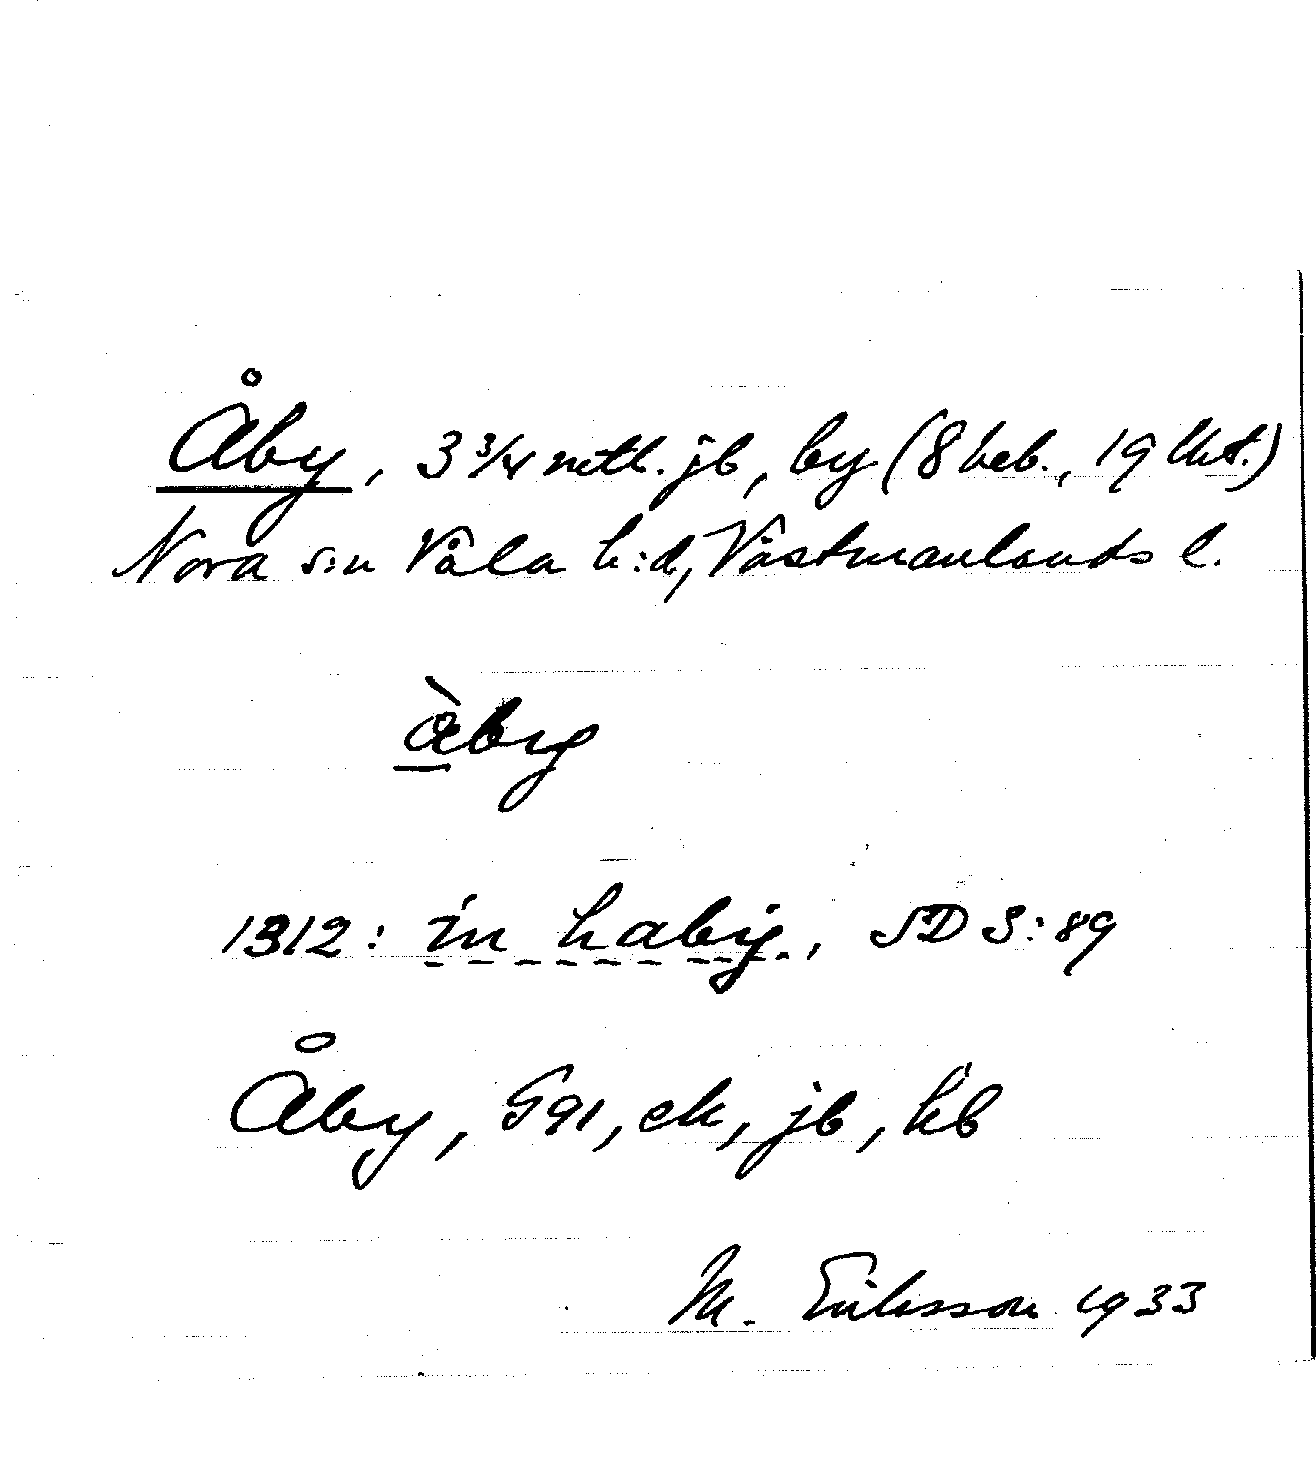 Åby, 3 3/4 mtl. jb, by (8 heb., 19 lht.)
Nora s:n Våla h:d, Västmanlands l.
àby
1312: in habÿ., SD 3:89
Åby, G91, ek, jb, kb
M. Eriksson 1933